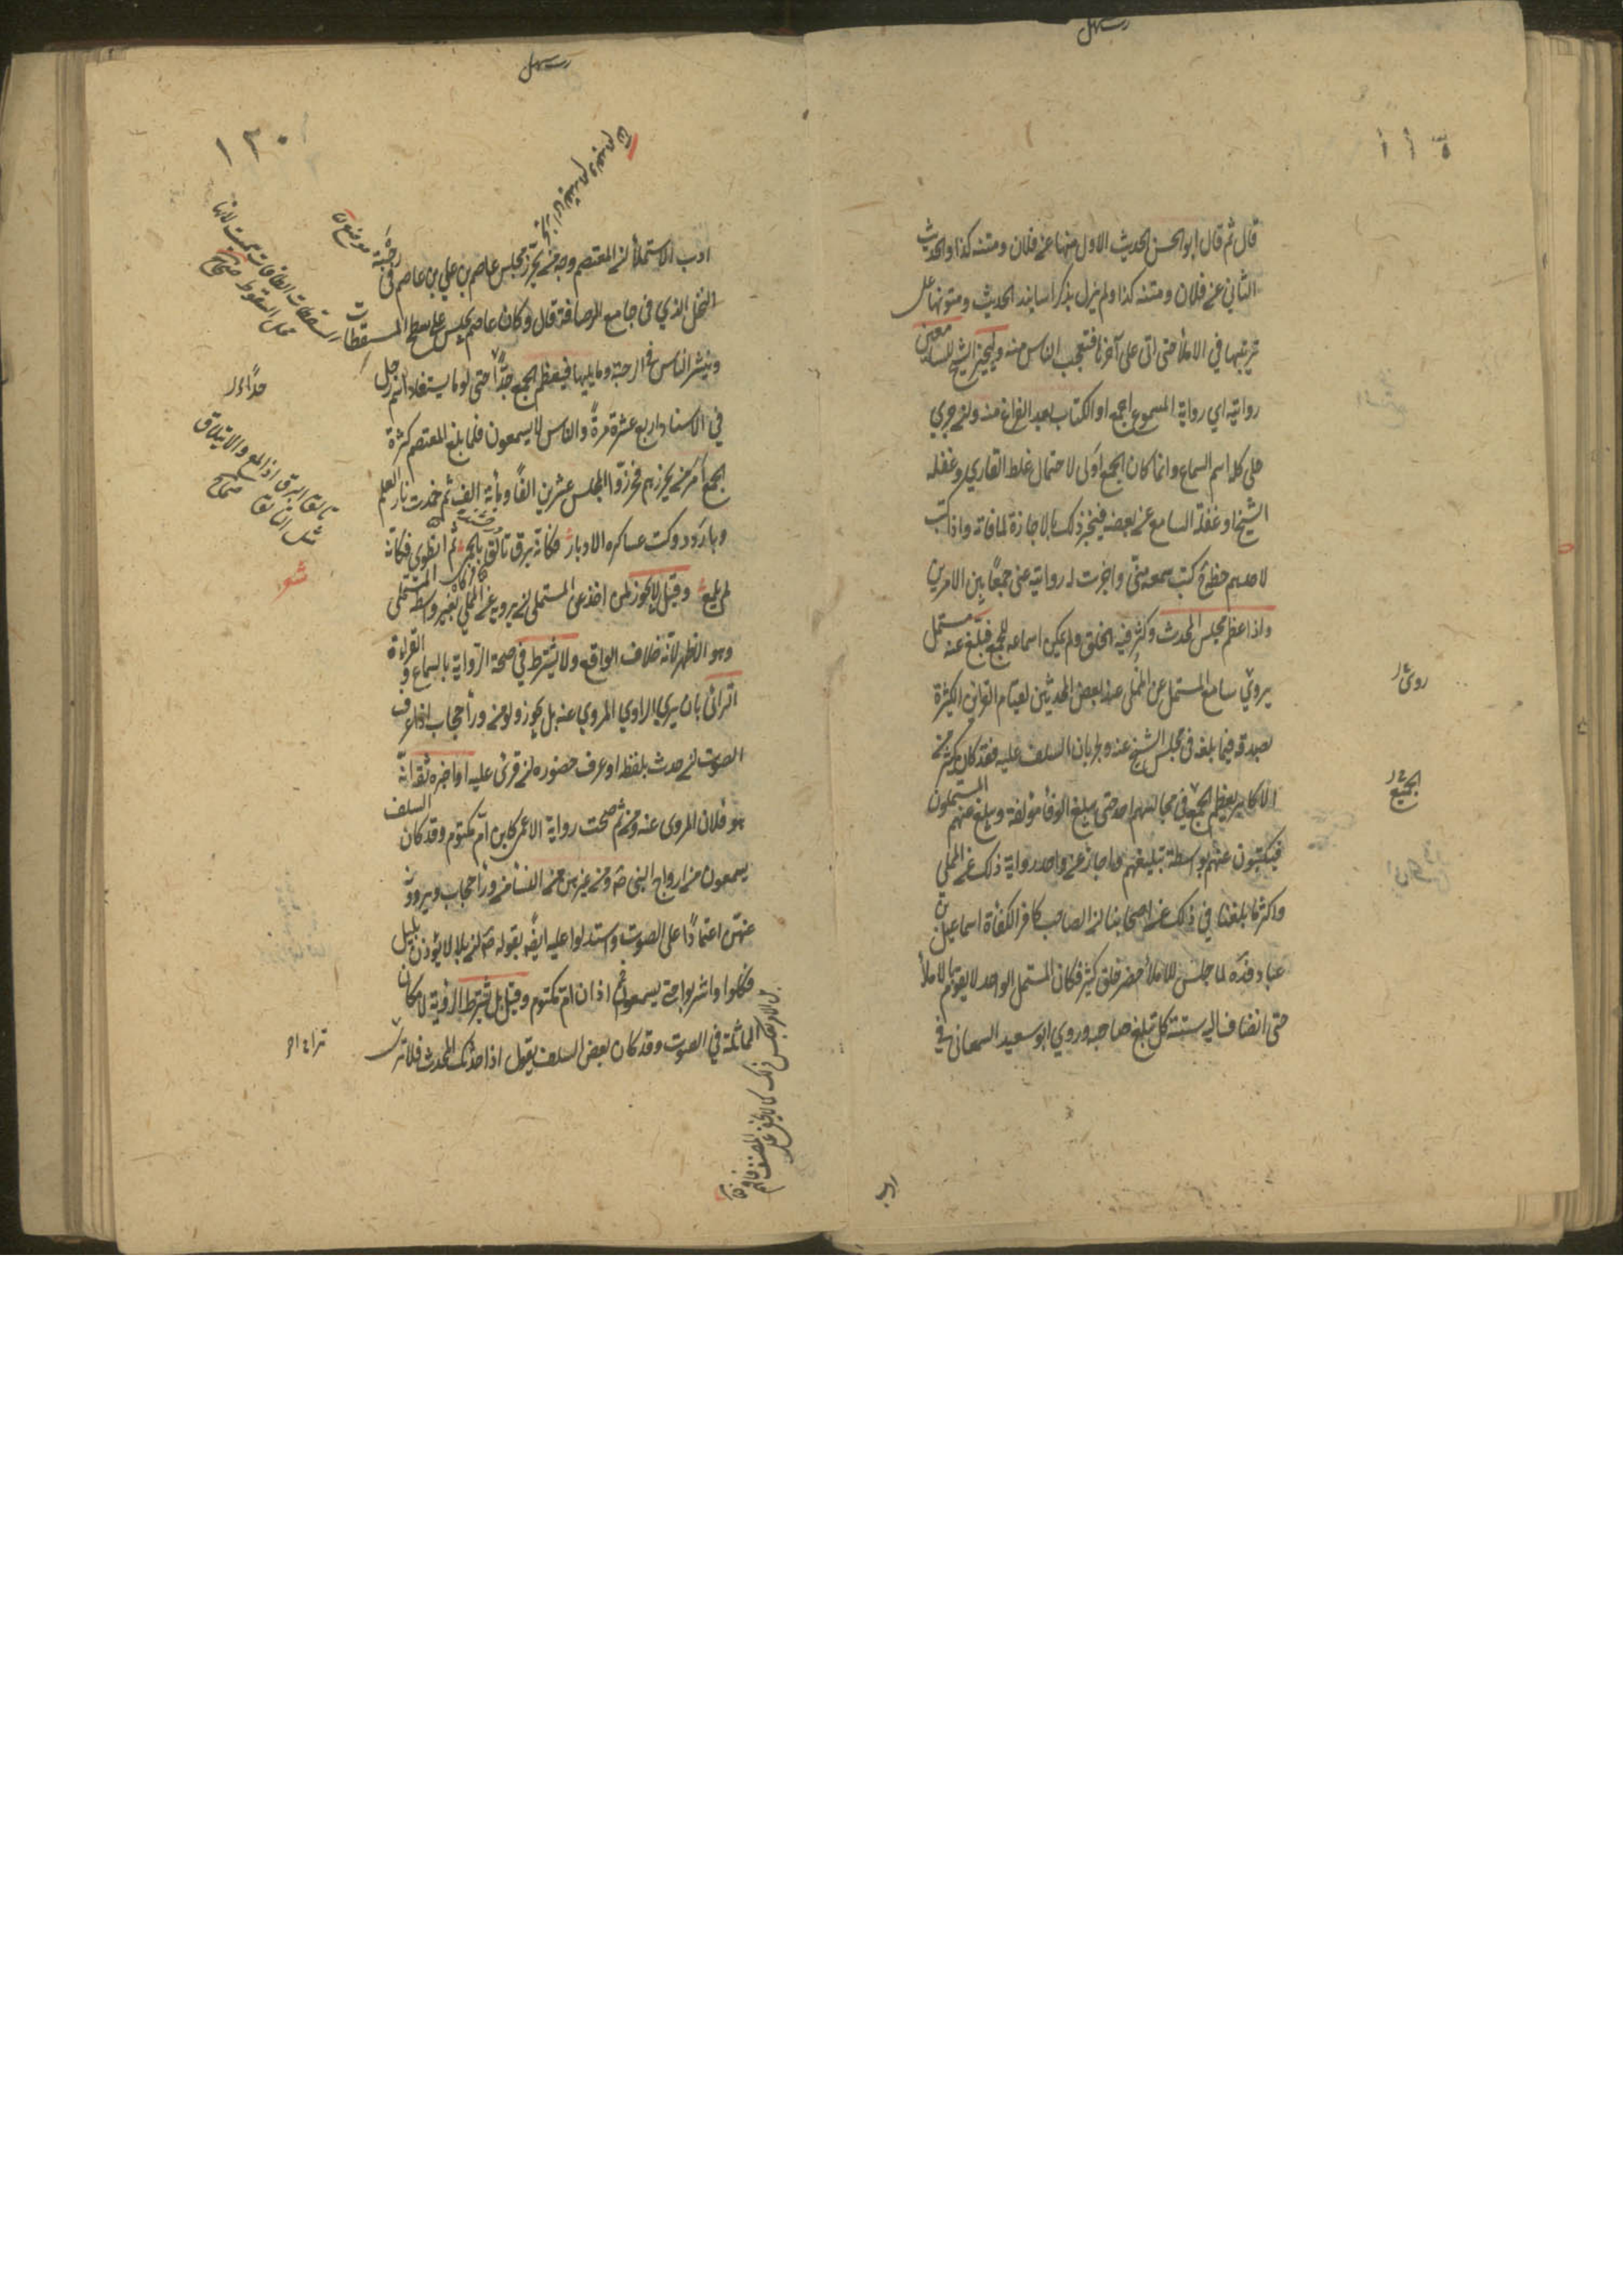 قال ثم قال ابو الحسن الحديث الاول منها عن فلان ومتنه كذا والحديث
الثاني عن فلان ومتنه كذا ولم يزل يذكر اسانيد الحديث ومتونها على
ترتيبها في الاملأ حتى اتى على آخرها فتعجب الناس منه وليجيز الشيخ للسامعين
روايته اي رواية المسموع اجمع او الكتاب بعد الفراغ منه وان جرى
على كله اسم السماع وانما كان الجمع اولى لاحتمال غلط القاري وغفلة
الشيخ او غفلة السامع عن بعضه فينجبر ذلك بالاجازة لما فاته واذا كتب
لاحدهم خطه ح كتب سمعه مني واجزت له روايته عني جمعًا بين الامرين
واذا عظم مجلس المحدث وكثر فيه الخلق ولم يمكن اسماعه للجمع فبلّغ عنه مستمل
يروي سامع المستملي عن المملي عند بعض المحدثين لقيام القرائن الكثيرة
بصدقه فيما بلغه في مجلس الشيخ عنه وجريان السلف عليه فقد كان كثير من
الاكابر يعظم الجمع في مجالسهم احد حتى يبلغ الوفأ مؤلفة ويبلغ عنهم المستملون
فيكتبون عنهم بواسطة تبليغهم واجاز غير واحد رواية ذلك عن المملي
واكثر ما بلغنا في ذلك عن اصحابنا ان الصاحب كافى الكفاة اسماعيل بن
عباد قده لما جلس للاملأ حضر خلق كثير فكان المستملي الواحد لا يقوم بالاملأ
حتى انضاف اليه ستة كل يبلغ صاحبه وروي ابو سعيد السمعاني في
روى
الجمع
ادب
١٢٠
ادب الاستملأ ان المعتصم وجه من يحرز مجلس عاصم بن علي بن عاصم في رحبة
النخل الذي في جامع الرصافة قال وكان عاصم يجلس على سطح المسقطات
وينتشر الناس في الرحبة وما يليها فيعظم الجمع جدًّا حتى
في الاسناد اربع عشرة مرةً والناس لا يسمعون فلما بلغ المعتصم كثرة
الجمع امر من يحرزهم فحرزوا المجلس عشرين الفًا ومأية الف ثم خمدت نار العلم
وبار وولت عساكره الادبار فكأنه برق تألق بالحمى ثم انطوى فكانه
لم يلمع وقيل لا يجوز لمن اخذ عن المستملي ان يرويه عن المملي بغير واسطة المستملي
وهو الاظهر لانه خلاف الواقع ولا يشترط في صحة الرواية بالسماع والقراءة
الترائي بان يرى الراوي المروي عنه بل يجوز ولو من ورأ حجاب اذا عرف
الصوت ان حدث بلفظه او عرف حضوره ان قرئ عليه او اخبره ثقة انّه
هو فلان المروى عنه ومن ثم صحت رواية الاعمى كابن ام مكتوم وقد كان السلف
يسمعون من ازواج النبي صه ومن غيرهن من النسا من ورأ حجاب ويروونه
عنهن اعتمادًا على الصوت واستدلوا عليه ايضًا بقوله صه ان بلالا يؤذن بليل
فكلوا واشربوا حتى تسمعوا اذان ام مكتوم وقيل بل يشترط الرؤية لامكان
المماثلة في الصوت وقد كان بعض السلف يقول اذا حدثك المحدث فلا ترى
رحبة
موضع
محل السقوط صحاح
جداء
تألق البرق اذا لمع والايتلاق
مثل التألق صحاح
شعر